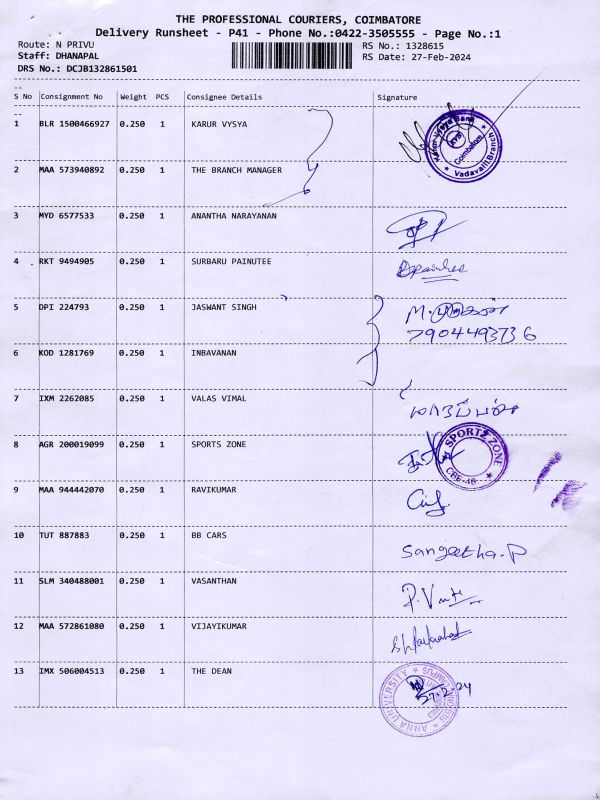 THE PROFESSIONAL COURIERS, COIMBATORE
Delivery Runsheet - P41 - Phone No.:0422-3505555 - Page No.:1
Route: N PRIVU
RS No.: 1328615
Staff: DHANAPAL
RS Date: 27-Feb-2024
DRS No.: DCJB132861501
S No Consignment No Weight PCS Consignee Details Signature
1 BLR 1500466927 0.250 1 KARUR VYSYA
Karur Vysya Bank
KVB
Coimbatore
* Vadavalli Branch *
2 MAA 573940892 0.250 1 THE BRANCH MANAGER
3 MYD 6577533 0.250 1 ANANTHA NARAYANAN
4 RKT 9494905 0.250 1 SURBARU PAINUTEE
5 DPI 224793 0.250 1 JASWANT SINGH
7904493736
6 KOD 1281769 0.250 1 INBAVANAN
7 IXM 2262085 0.250 1 VALAS VIMAL
8 AGR 200019099 0.250 1 SPORTS ZONE
SPORTS ZONE
CBE-46.
9 MAA 944442070 0.250 1 RAVIKUMAR
10 TUT 887883 0.250 1 BB CARS Sangeetha.P
11 SLM 340488001 0.250 1 VASANTHAN
12 MAA 572861080 0.250 1 VIJAYIKUMAR
13 IMX 506004513 0.250 1 THE DEAN
ANNA UNIVERSITY
27.2.24